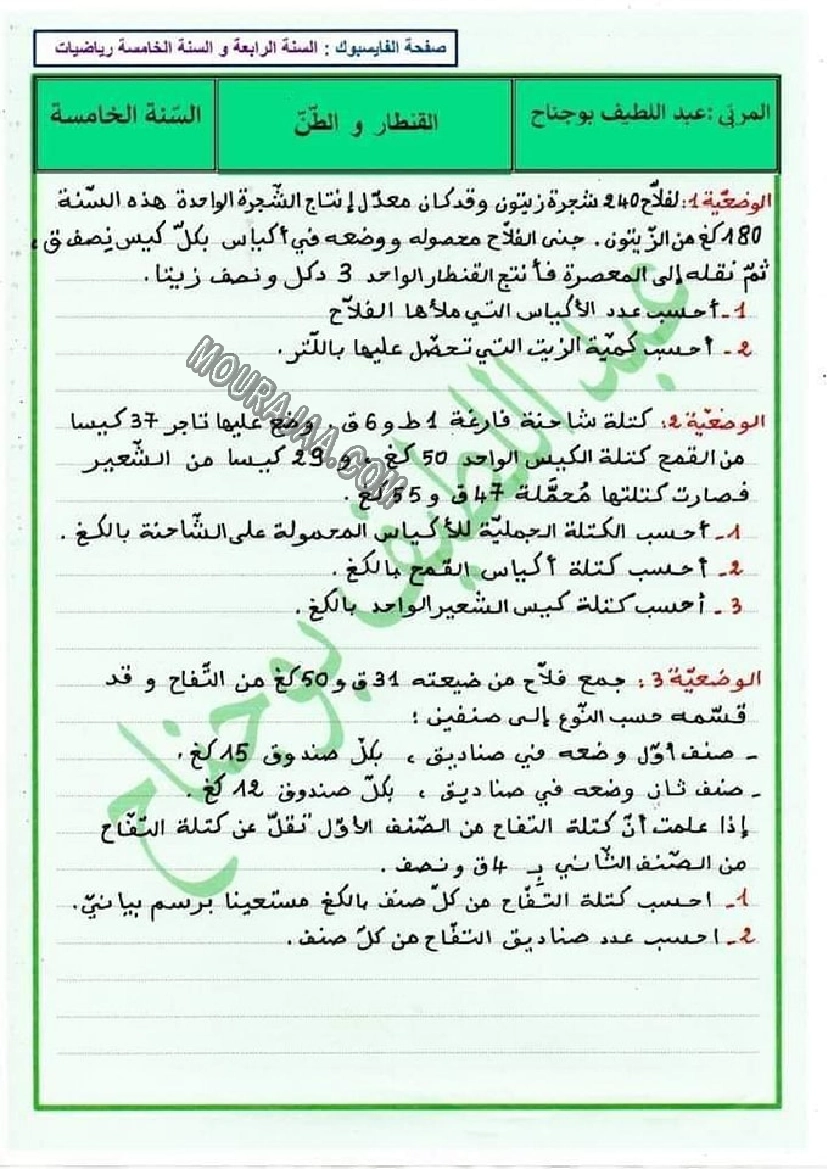 صفحة الفايسبوك : السنة الرابعة و السنة الخامسة رياضيات
المربّي :عبد اللطيف بوجناح
القنطار و الطّنّ
السّنة الخامسة
الوضعيّة 1: لفلاّح 240 شجرة زيتون وقد كان معدّل إنتاج الشّجرة الواحدة هذه السّنة
180 كغ من الزّيتون. جنى الفلاّح محصوله ووضعه في أكياس بكلّ كيس نصف ق،
ثمّ نقله إلى المعصرة فأنتج القنطار الواحد 3 دكل ونصف زيتا.
1- أحسب عدد الأكياس التي ملأها الفلاّح
2- أحسب كميّة الزيت التي تحصّل عليها باللّتر.
الوضعيّة 2: كتلة شاحنة فارغة 1 ط و 6 ق. وضع عليها تاجر 37 كيسا
من القمح كتلة الكيس الواحد 50 كغ. و 29 كيسا من الشّعير
فصارت كتلتها مُحمَّلة 47 ق و 55 كغ.
1- أحسب الكتلة الجمليّة للأكياس المحمولة على الشّاحنة بالكغ.
2- أحسب كتلة أكياس القمح بالكغ.
3- أحسب كتلة كيس الشّعير الواحد بالكغ.
الوضعيّة 3: جمع فلاّح من ضيعته 31 ق و 50 كغ من التّفاح و قد
قسّمه حسب النّوع إلى صنفين:
- صنف أوّل وضعه في صناديق، بكلّ صندوق 15 كغ.
- صنف ثان وضعه في صناديق، بكلّ صندوق 12 كغ.
إذا علمت أنّ كتلة التفاح من الصّنف الأوّل تقلّ عن كتلة التفّاح
من الصّنف الثّاني بِـ 4 ق ونصف.
1- احسب كتلة التفّاح من كلّ صنف بالكغ مستعينا برسم بيانيّ.
2- احسب عدد صناديق التفّاح من كلّ صنف.
عبد اللطيف بوجناح
MOURAJAA.COM